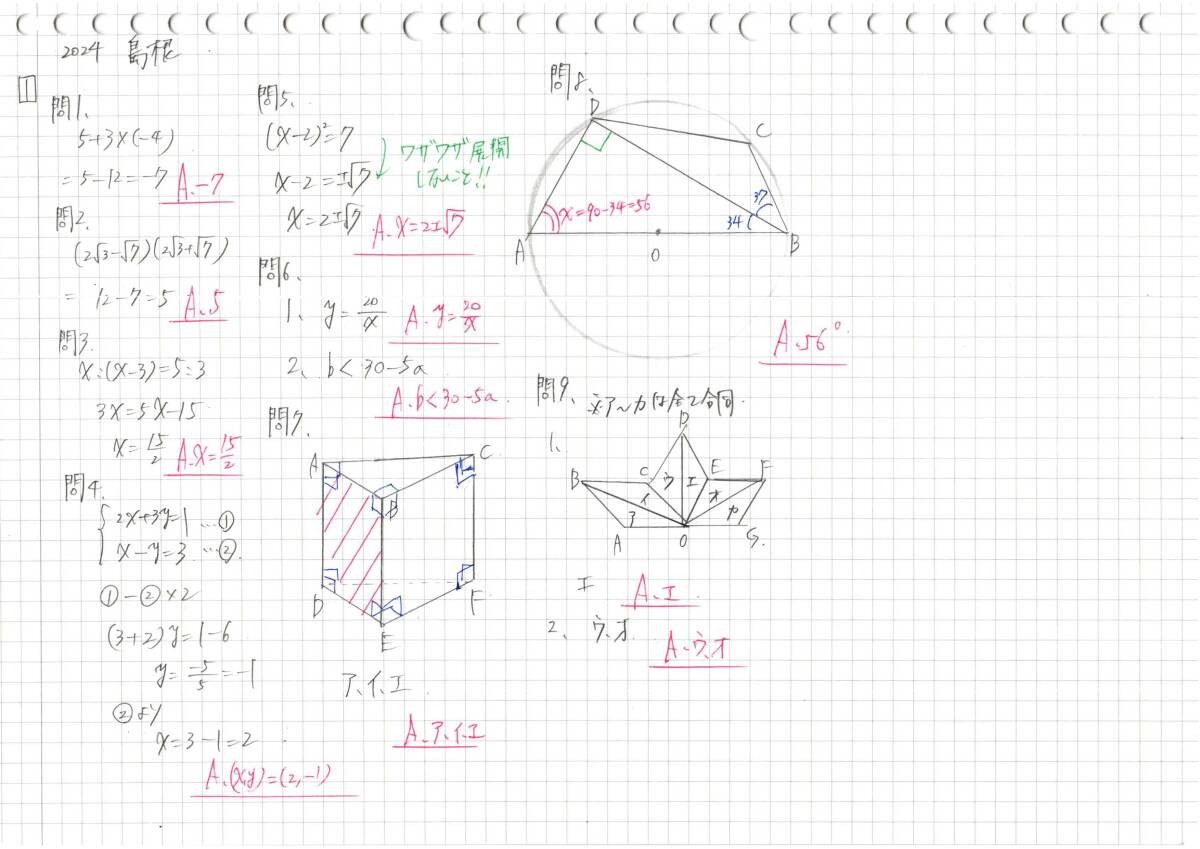 2024 島根
1
問1.
5+3×(-4)
=5-12=-7 A.-7
問2.
(2√3-√7)(2√3+√7)
= 12-7=5 A.5
問3.
x:(x-3)=5:3
3x=5x-15
x=15/2 A.x=15/2
問4.
{2x+3y=1 …①
x-y=3 …②
①-②×2
(3+2)y=1-6
y=-5/5=-1
②より
x=3-1=2
A.(x,y)=(2,-1)
問5、
(x-2)²=7
x-2=±√7
ワザワザ展開
しないこと!!
x=2±√7 A.x=2±√7
問6、
1、 y=20/x A.y=20/x
2、 b<30-5a
A.b<30-5a
問7.
A
C
B
D
F
E
ア、イ、エ
A.ア、イ、エ
問8、
D
C
x=90-34=56
37
34
A
O
B
A.56°
問9、 ※ア~カは全て合同.
1、
D
B C ウ エ E F
イ オ
ア カ
A O G
エ A.エ
2、 ウ、オ
A.ウ、オ